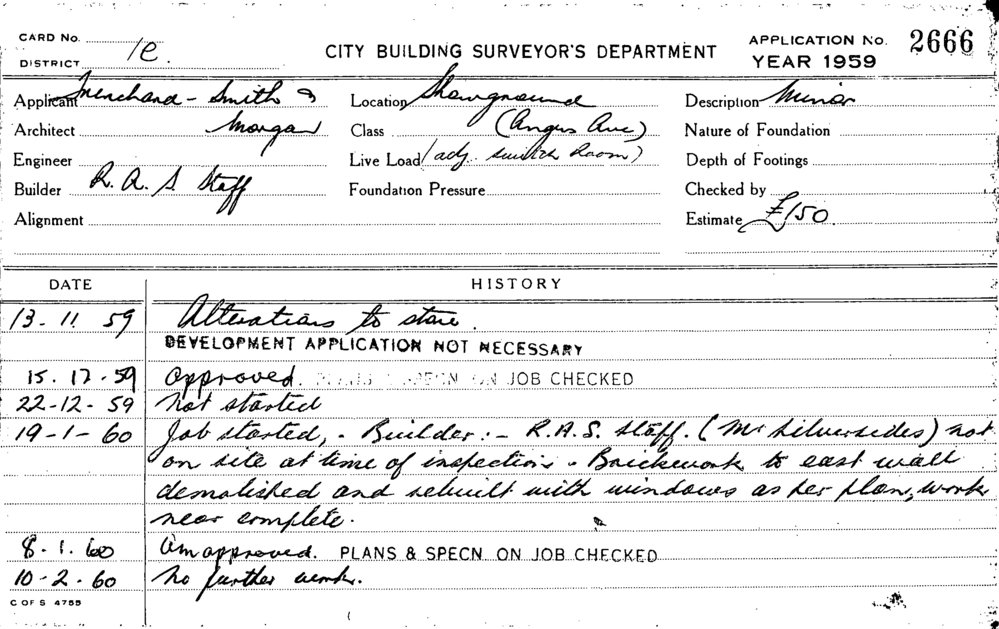 CARD No.
DISTRICT 1C
CITY BUILDING SURVEYOR'S DEPARTMENT
APPLICATION No. 2666
YEAR 1959
Applicant Trenchard - Smith &
Location Showground
Description Minor
Architect Morgan
Class (Angus Ave)
Nature of Foundation
Engineer
Live Load (adj. switch Room)
Depth of Footings
Builder R. A. S Staff
Foundation Pressure
Checked by
Alignment
Estimate £150
DATE
HISTORY
13. 11. 59 Alterations to store.
DEVELOPMENT APPLICATION NOT NECESSARY
15. 12. 59 Approved. PLANS & SPECN ON JOB CHECKED
22-12-59 Not started
19-1-60 Job started, - Builder:- R.A.S. Staff. (Mr Silversides) not
on site at time of inspection - Brickwork to east wall
demolished and rebuilt with windows as per plan, work
near complete.
8. 1. 60 approved. PLANS & SPECN ON JOB CHECKED
10-2-60 No further work.
C OF S 4755